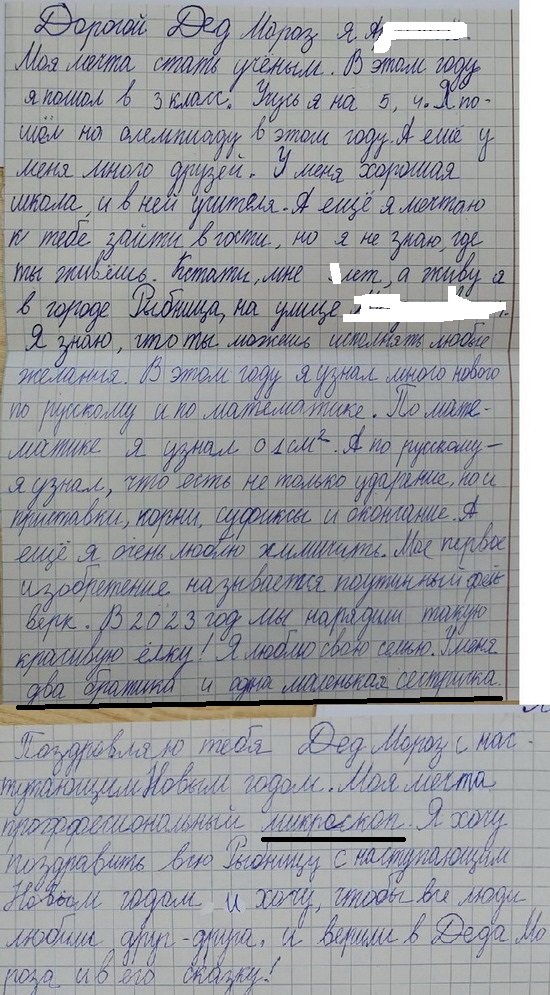 Дорогой Дед Мороз я
Моя мечта стать учёным. В этом году
я пошол в 3 класс. Учусь я на 5, 4. Я по-
шёл на олемпиаду в этом году. А ещё у
меня много друзей. У меня хорошая
школа, и в ней учителя. А ещё я мечтаю
к тебе зайти в гости, но я не знаю, где
ты живёшь. Кстати, мне лет, а живу я
в городе Рыбница, на улице
Я знаю, что ты можешь исполнять любые
желания. В этом году я узнал много нового
по русскому и по математике. По мате-
матике я узнал о 1 см². А по русскому –
я узнал, что есть не только ударение, но и
приставки, корни, суфиксы и окончание. А
ещё я очень люблю химичить. Мое первое
изобретение называется паутинный фей-
верк. В 2023 год мы нарядили такую
красивую ёлку! Я люблю свою семью. У меня
два братика и одна маленькая сестричка.
Поздравляю тебя Дед Мороз с нас-
тупающим Новым годом. Моя мечта
профессиональный микроскоп. Я хочу
поздравить всю Рыбницу с наступающим
Новым годом и хочу, чтобы все люди
любили друг-друга, и верили в Деда Мо
роза и в его сказку!